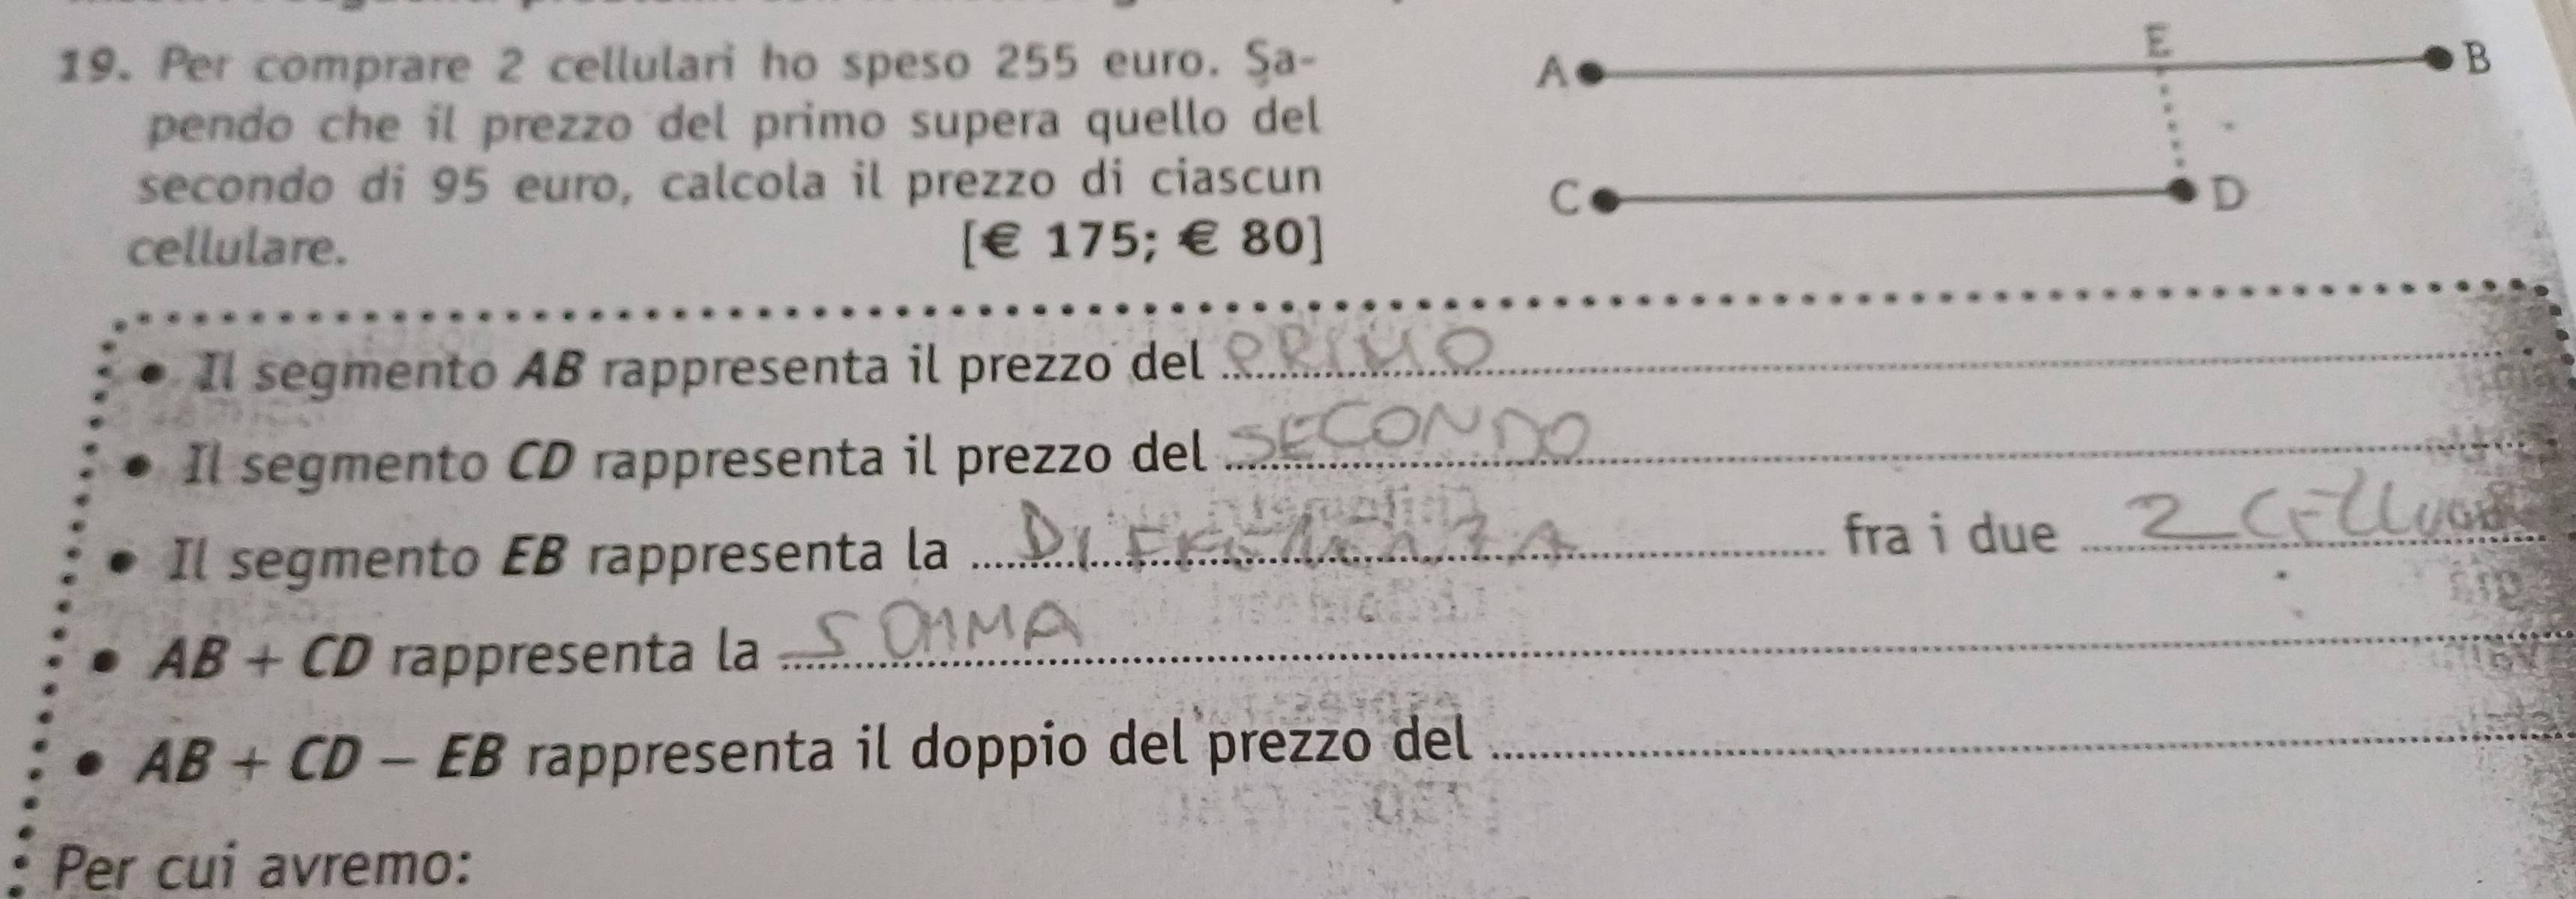 19. Per comprare 2 cellulari ho speso 255 euro. Sa-
pendo che il prezzo del primo supera quello del
secondo di 95 euro, calcola il prezzo di ciascun
cellulare. [€ 175; € 80]
A E B
C D
• Il segmento AB rappresenta il prezzo del PRIMO
• Il segmento CD rappresenta il prezzo del SECONDO
• Il segmento EB rappresenta la fra i due 2
• AB + CD rappresenta la SOMMA
• AB + CD – EB rappresenta il doppio del prezzo del
Per cui avremo: